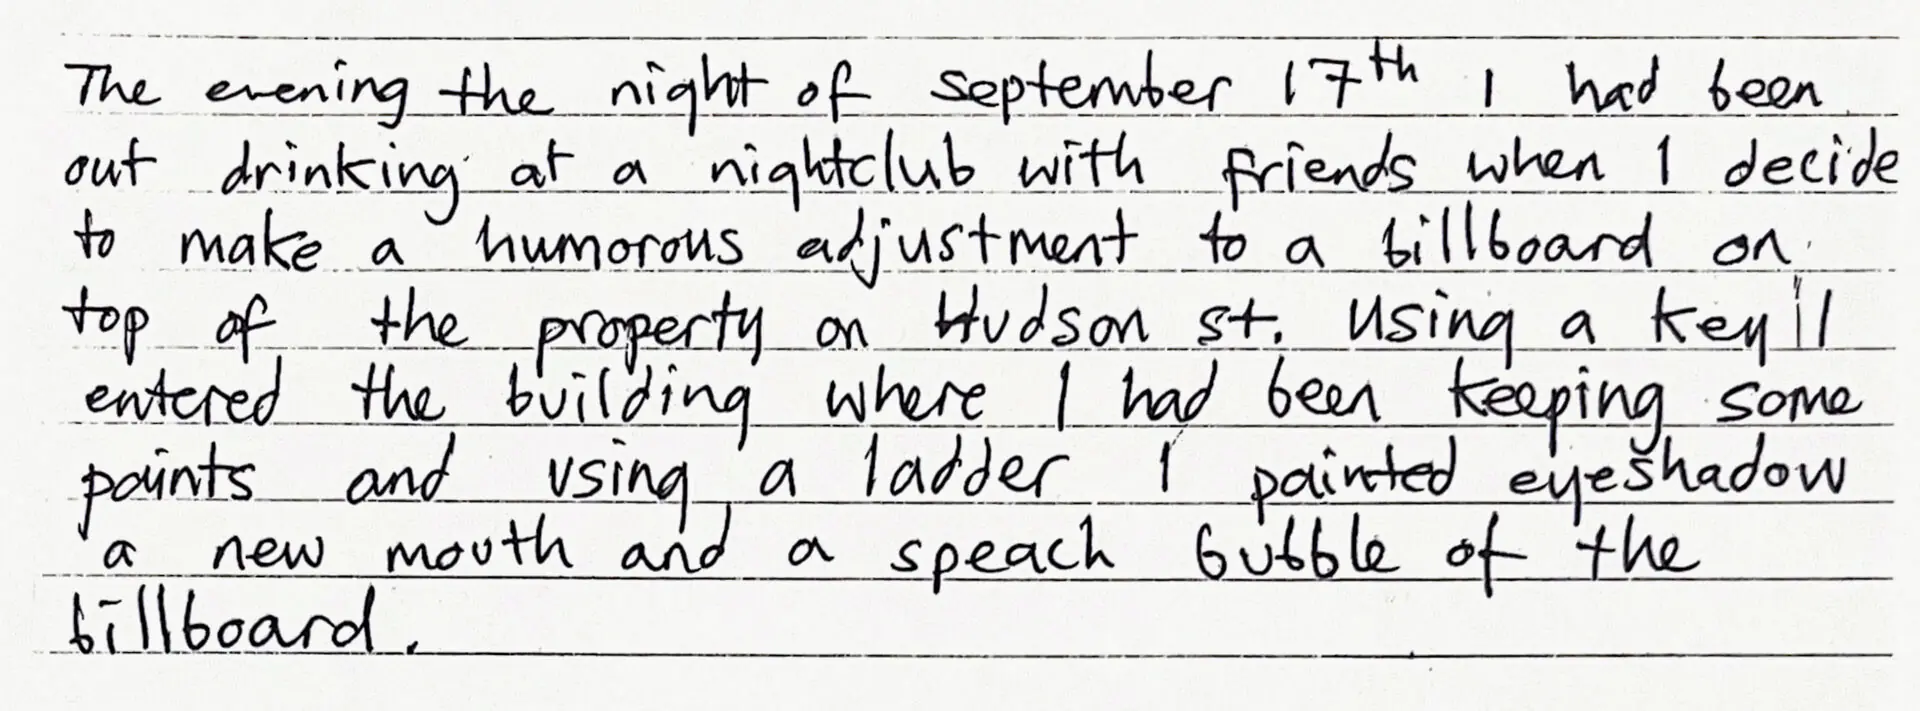 The evening the night of September 17th I had been
out drinking at a nightclub with friends when I decide
to make a humorous adjustment to a billboard on
top of the property on Hudson St. Using a key I
entered the building where I had been keeping some
paints and using a ladder I painted eyeshadow
a new mouth and a speach bubble of the
billboard.